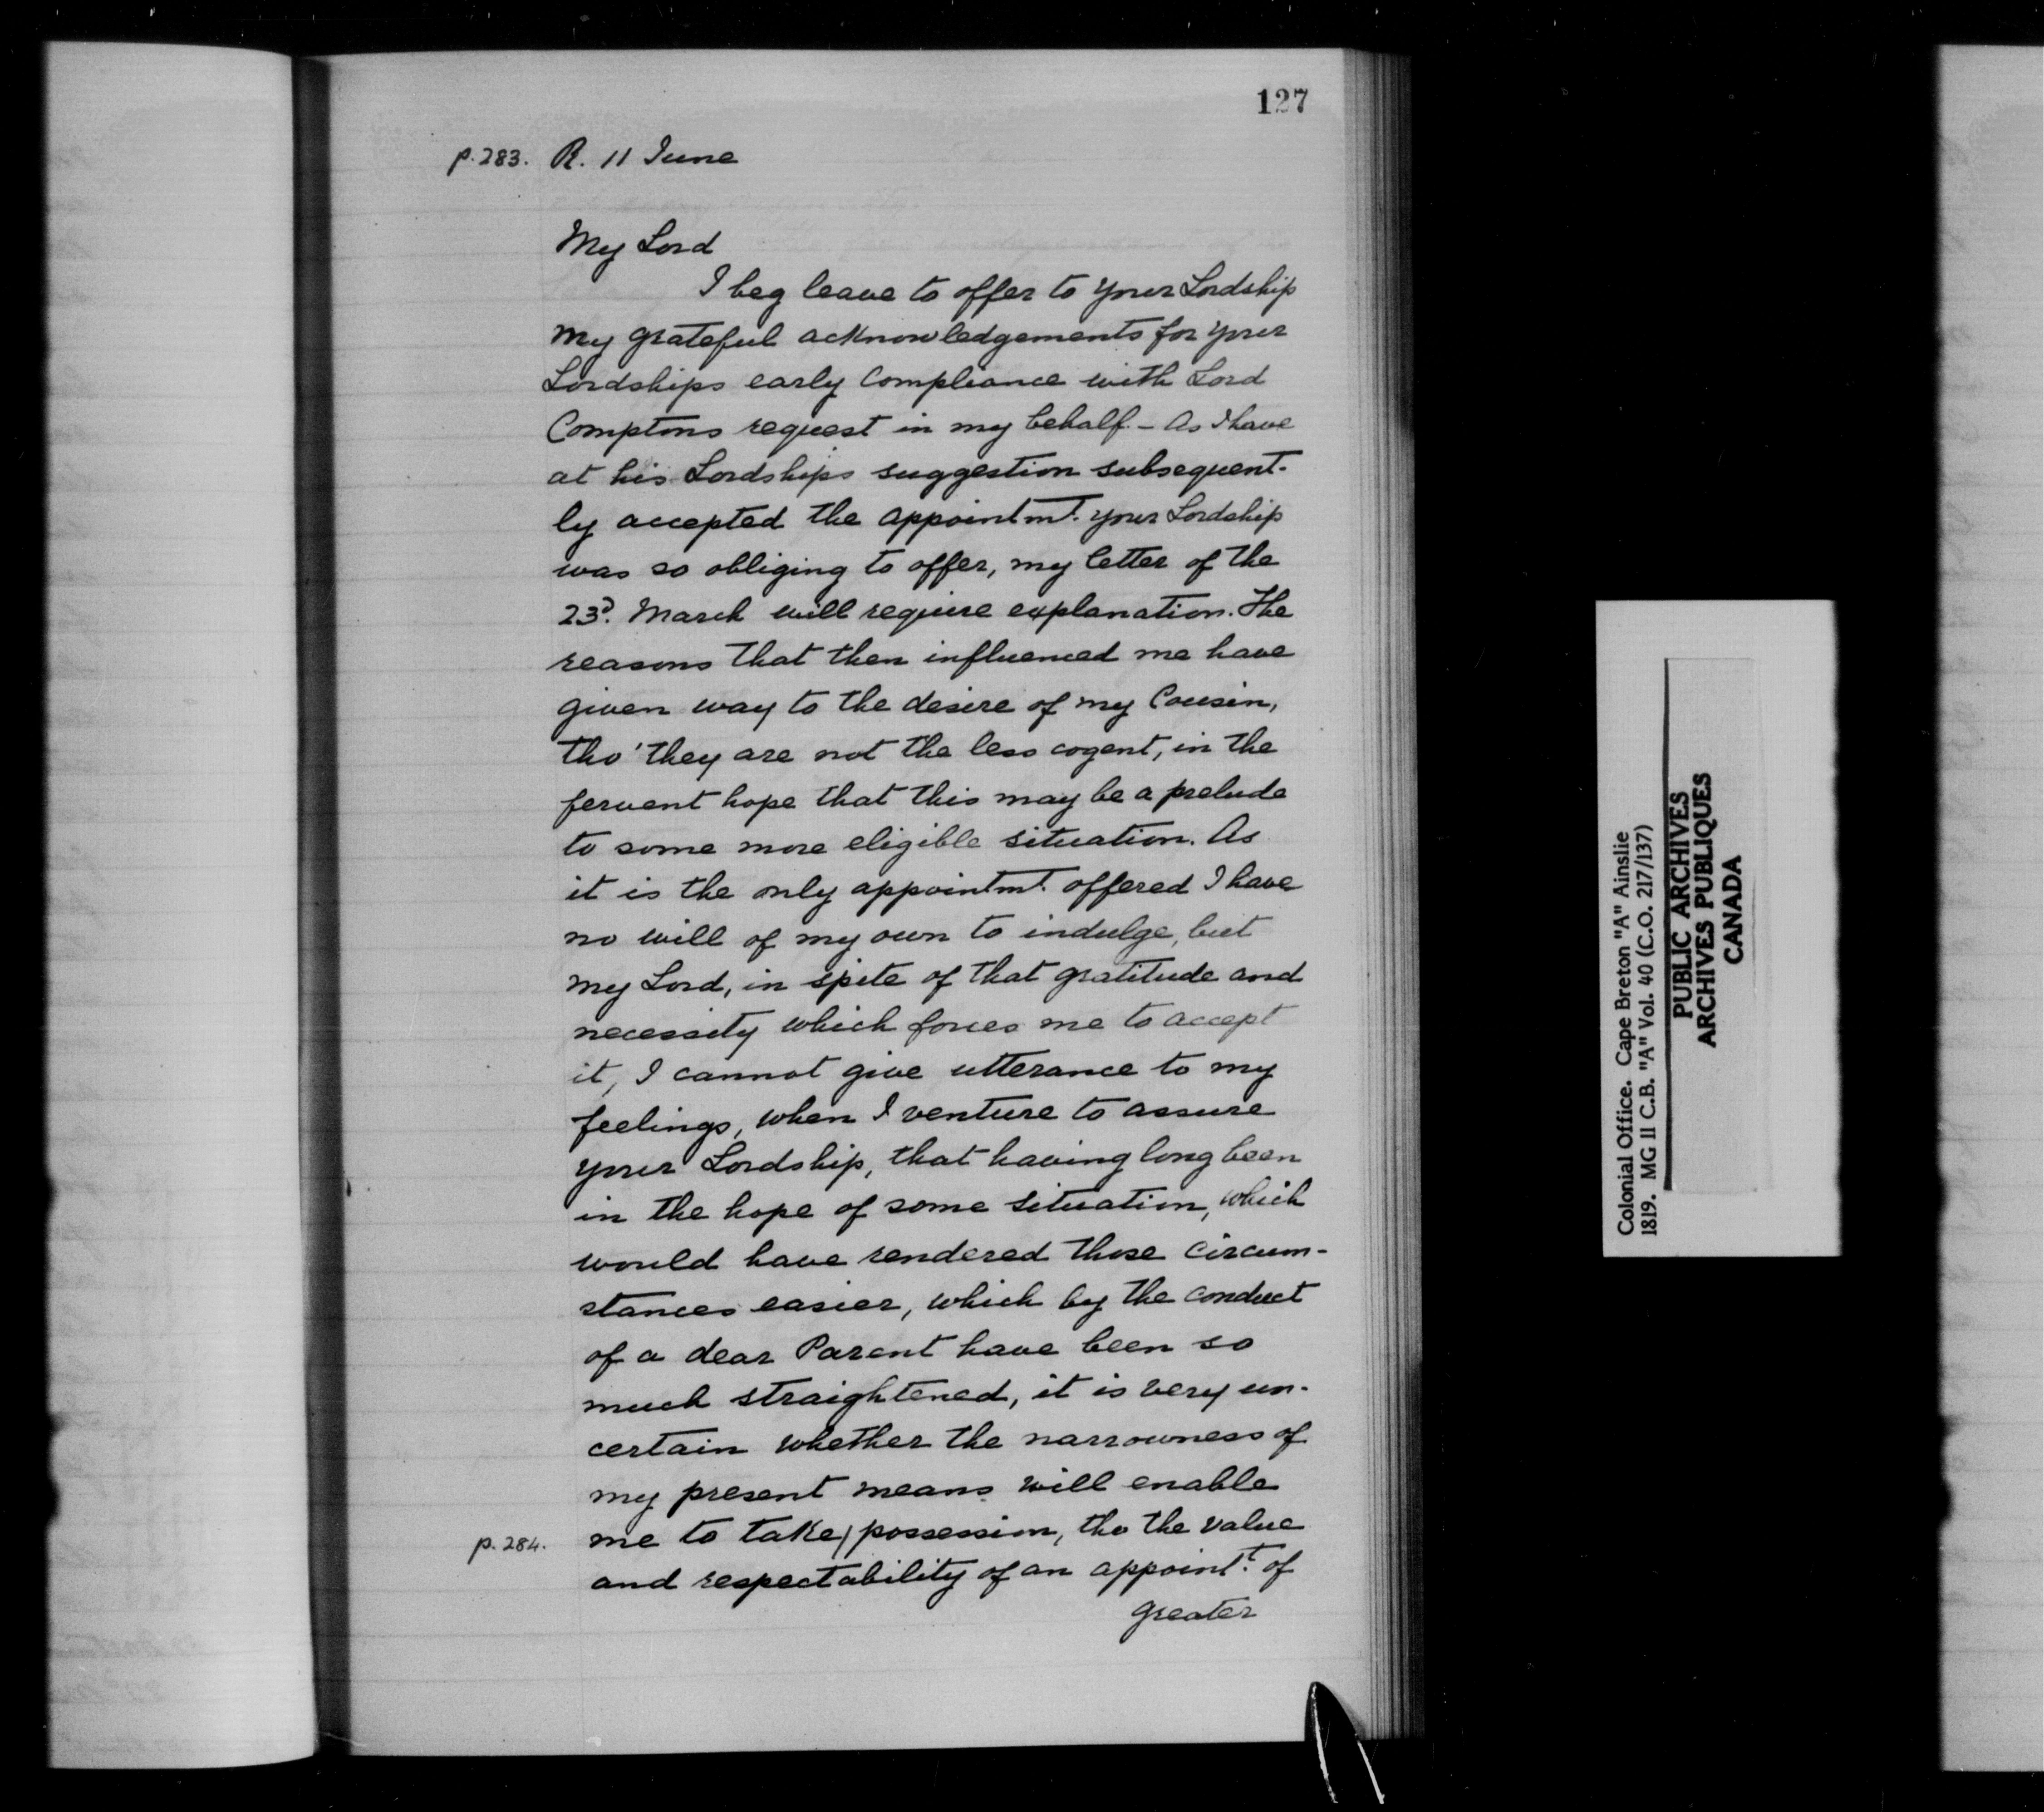 127
p.283. R. 11 June
My Lord
I beg leave to offer to your Lordship
my grateful acknowledgements for your
Lordships early compliance with Lord
Comptons request in my behalf. - As I have
at his Lordships suggestion subsequent-
ly accepted the appointmt. your Lordship
was so obliging to offer, my letter of the
23d. March will require explanation. The
reasons that then influenced me have
given way to the desire of my Cousin,
tho' they are not the less cogent, in the
fervent hope that this may be a prelude
to some more eligible situation. As
it is the only appointmt. offered I have
no will of my own to indulge, but
my Lord, in spite of that gratitude and
necessity which forces me to accept
it, I cannot give utterance to my
feelings, when I venture to assure
your Lordship, that having long been
in the hope of some situation, which
would have rendered those circum-
stances easier, which by the conduct
of a dear Parent have been so
much straightened, it is very un-
certain whether the narrowness of
my present means will enable
p.284. me to take/possession, tho the value
and respectability of an appoint.t of
greater
Colonial Office. Cape Breton "A" Ainslie
1819. MG 11 C.B. "A" Vol. 40 (C.O. 217/137)
PUBLIC ARCHIVES
ARCHIVES PUBLIQUES
CANADA